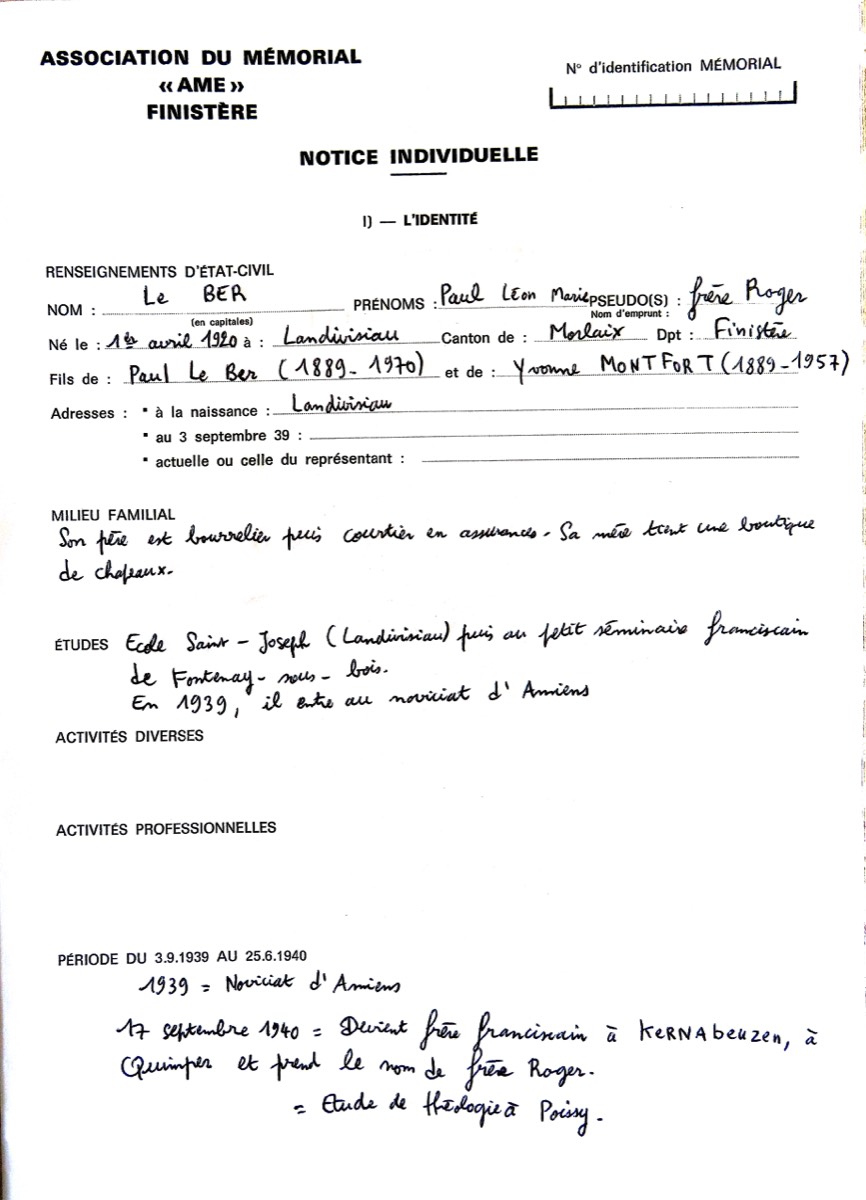 ASSOCIATION DU MÉMORIAL
« AME »
FINISTÈRE
N° d'identification MÉMORIAL
NOTICE INDIVIDUELLE
I) — L'IDENTITÉ
RENSEIGNEMENTS D'ÉTAT-CIVIL
NOM : Le BER PRÉNOMS : Paul Léon Marie PSEUDO(S) : frère Roger
(en capitales) Nom d'emprunt :
Né le : 1er avril 1920 à : Landivisiau Canton de : Morlaix Dpt : Finistère
Fils de : Paul Le Ber (1889-1970) et de : Yvonne MONTFORT (1889-1957)
Adresses : • à la naissance : Landivisiau
• au 3 septembre 39 :
• actuelle ou celle du représentant :
MILIEU FAMILIAL
Son père est bourrelier puis courtier en assurances. Sa mère tient une boutique
de chapeaux.
ÉTUDES Ecole Saint-Joseph (Landivisiau) puis au petit séminaire franciscain
de Fontenay-sous-bois.
En 1939, il entre au noviciat d'Amiens
ACTIVITÉS DIVERSES
ACTIVITÉS PROFESSIONNELLES
PÉRIODE DU 3.9.1939 AU 25.6.1940
1939 = Noviciat d'Amiens
17 septembre 1940 = Devient frère franciscain à KERNAbeuzen, à
Quimper et prend le nom de frère Roger.
= Etude de théologie à Poissy.